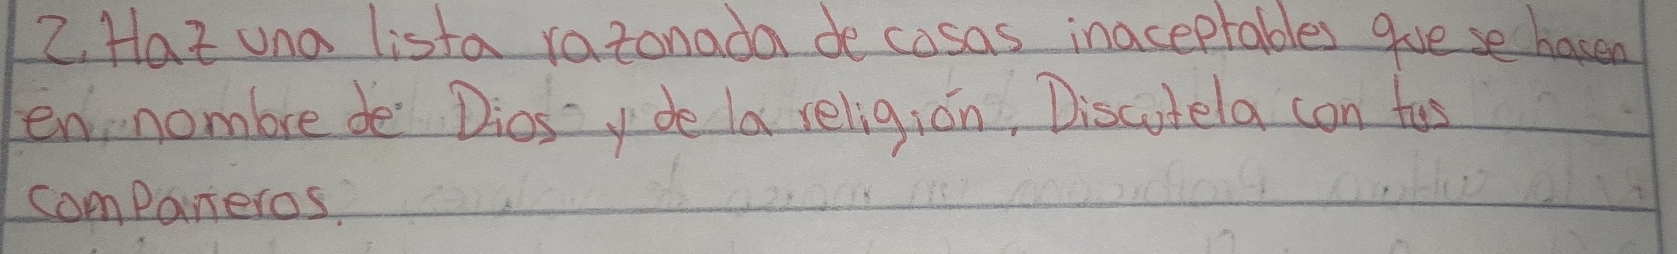 2. Haz una lista razonada de cosas inaceptables que se hacen
en nombre de Dios y de la religión. Discutela con tus
compañeros.